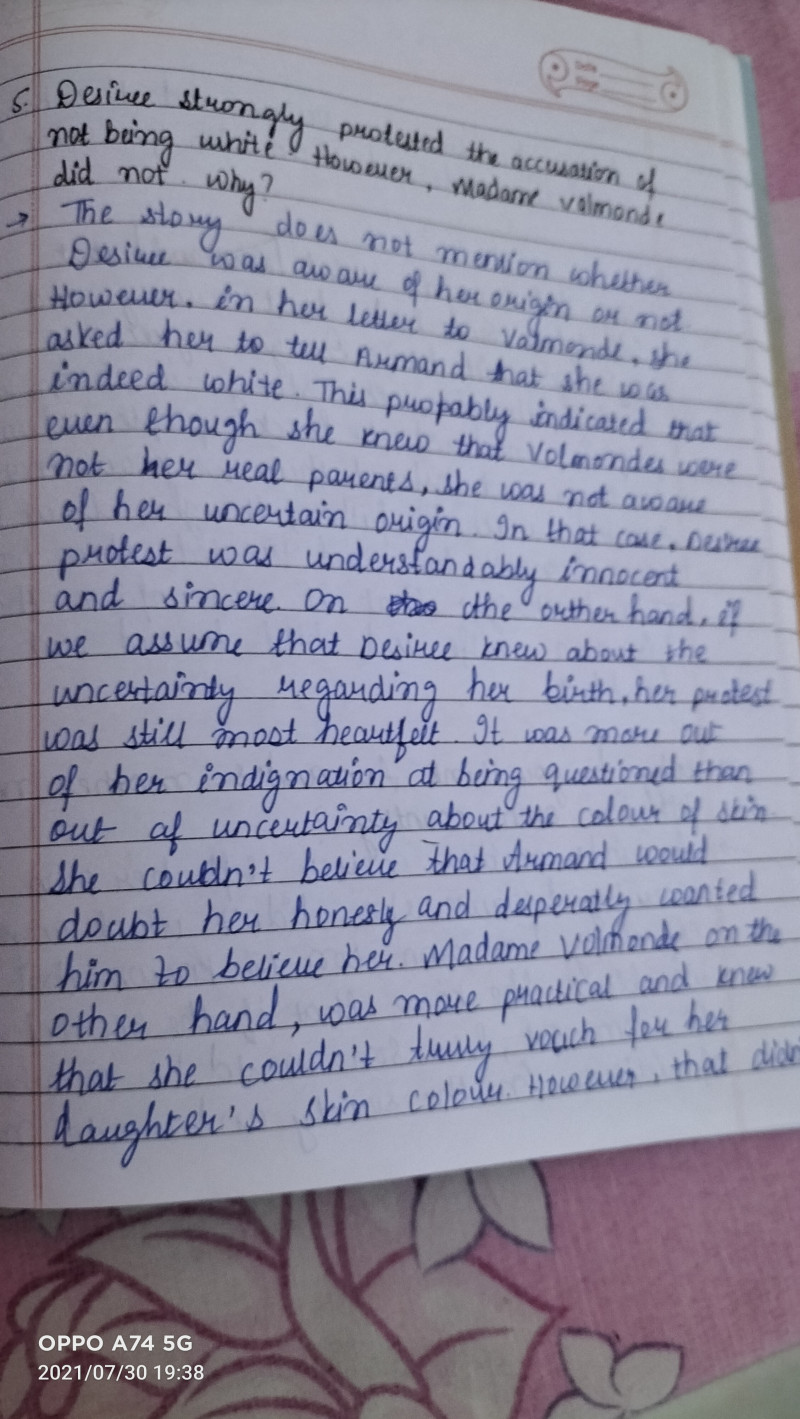 Date
Page
5. Desiree strongly protested the accusation of
not being white. However, Madame Valmonde
did not. Why?
→ The story does not mention whether
Desiree was aware of her origin or not
However, in her letter to Valmonde, she
asked her to tell Armand that she was
indeed white. This propably indicated that
even though she knew that Valmondes were
not her real parents, she was not aware
of her uncertain origin. In that case, Desiree
protest was understandably innocent
and sincere. On the outher hand, if
we assume that Desiree knew about the
uncertainty regarding her birth, her protest
was still most heartfelt. It was more out
of her indignation at being questioned than
out of uncertainty about the colour of skin
She couldn't believe that Armand would
doubt her honesty and desperatly wanted
him to believe her. Madame Valmonde on the
other hand, was more practical and knew
that she couldn't truly vouch for her
daughter's skin colour. However, that didn
OPPO A74 5G
2021/07/30 19:38